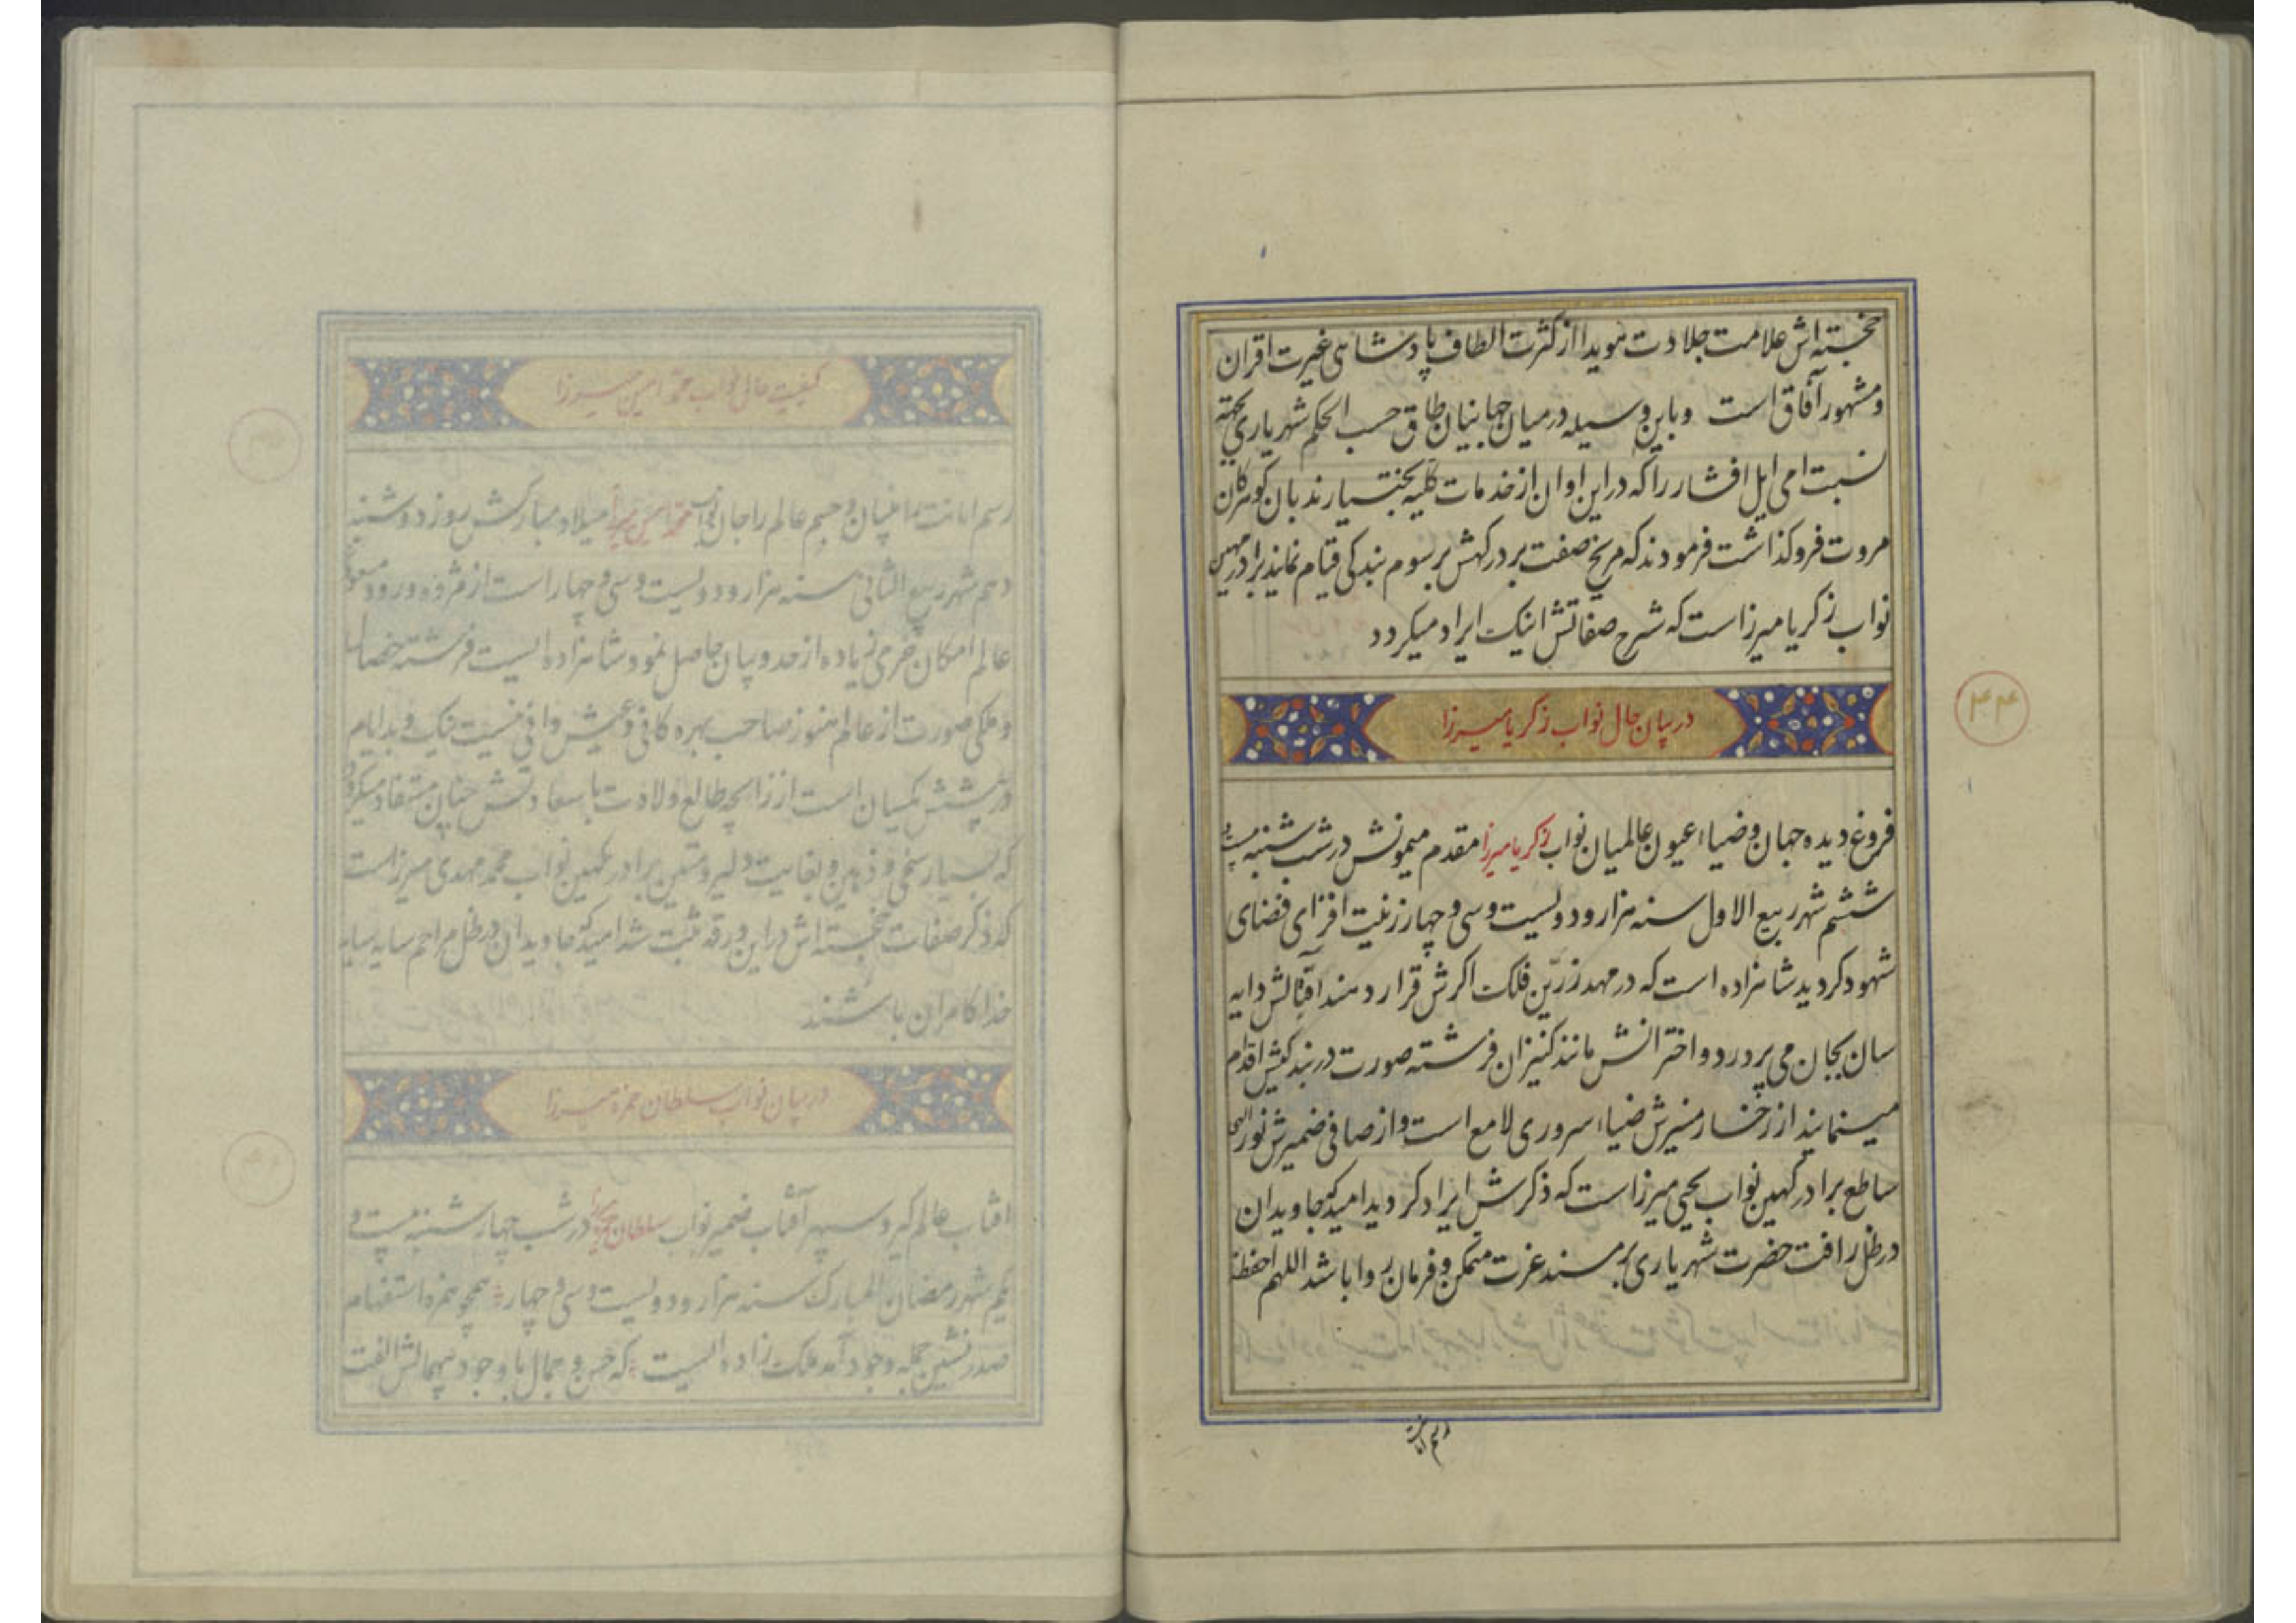 خجسته اش علامت جلادت هویدا از کثرت الطاف پادشاهی غیرت اقران
و مشهور آفاق است و باین وسیله در میان جهانیان طاق حسب الحکم شهریاری
نسبتا می ایل افشار را که در این اوان از خدمات کلیه
مروت فرو کذاشت فرمودند که مریخ صفت بر درکهش برسوم بندکی قیام نمایند برادر مهین
نواب زکریا میرزاست که شرح صفاتش اینک ایراد میکردد
در بیان حال نواب زکریا میرزا
۴۴
فروغ دیده جهان و ضیاء عیون عالمیان نواب زکریا میرزا مقدم میمونش در شب شنبه بیست و
ششم شهر ربیع الاول سنه هزار و دولیست و سی و چهار زینت افزای فضای
شهود کردید شاهزاده است که در مهد زرین فلک اکرش قرار دهند اقبالش دایه
سان بجان می پرورد و اخترانش مانند کنیزان فرشته صورت در بندکیش اقدام
مینمایند از رخسار منیرش ضیاء سروری لامع است و از صافی ضمیرش نور
ساطع برادر کهین نواب یحیی میرزاست که ذکرش ایراد کردید امید که جاویدان
در ظل رافت حضرت شهریاری بر مسند عزت متمکن و فرمان روا باشد اللهم احفظه
کیفیت حال نواب محمد امین میرزا
رسم امانت را ضیان و جسم عالم را جان نواب محمد امین میرزا میلاد مبارکش روز دوشنبه
دهم شهر ربیع الثانی سنه هزار و دولیست و سی و چهار است از مژده ورود
عالم امکان خرمی زیاده از حد و پیان حاصل نمود شاهزاده ایست فرشته خصال
و ملکی صورت از عالم هنوز صاحب بهره کافی و عیش وافی نیست نیک و بد ایام
در پیشش یکسان است از زایچه طالع ولادت با سعادتش چنان مستفاد میکردد
که بسیار سخی و ذهین و بغایت دلیر و متین برادر کهین نواب محمد مهدی میرزاست
که ذکر صفات خجسته اش در این ورقه ثبت شد امید که جاویدان در ظل مراحم سایه
خدا کامران باشند
در بیان نواب سلطان حمزه میرزا
افتاب عالم کیر و سپهر آفتاب ضمیر نواب سلطان حمزه میرزا در شب چهار شنبه بیست و
یکم شهر رمضان المبارک سنه هزار و دولیست و سی و چهار همچو همزه استفهام
صدر نشین جمله وجود آمد ملک زاده ایست که حسن و جمال با وجود بیهمالش الفت